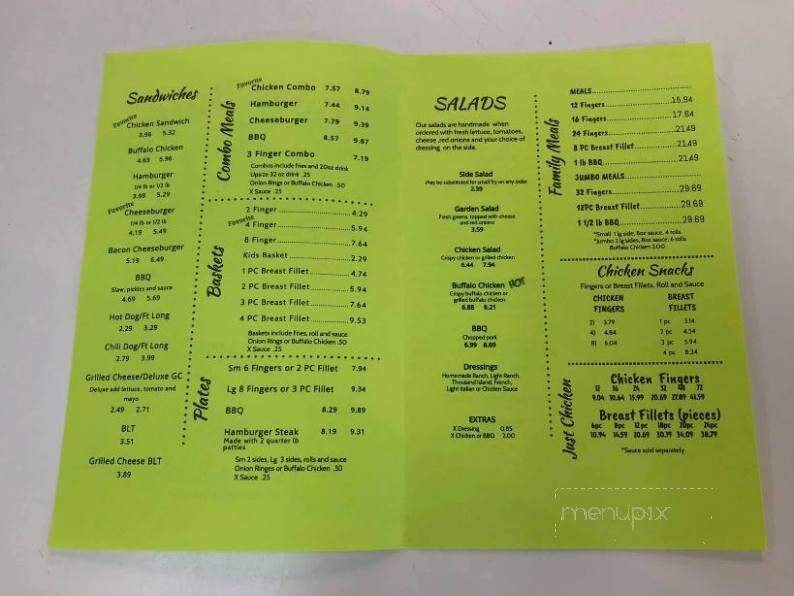 Sandwiches
Favorite
Chicken Sandwich
3.96 5.32
Buffalo Chicken
4.63 5.96
Hamburger
1/4 lb or 1/2 lb
3.99 5.29
Favorite
Cheeseburger
1/4 lb or 1/2 lb
4.19 5.49
Bacon Cheeseburger
5.19 6.49
BBQ
Slaw, pickles and sauce
4.69 5.69
Hot Dog/Ft Long
2.29 3.29
Chili Dog/Ft Long
2.79 3.99
Grilled Cheese/Deluxe GC
Deluxe add lettuce, tomato and
mayo
2.49 2.71
BLT
3.51
Grilled Cheese BLT
3.89
Combo Meals
Favorite
Chicken Combo 7.57 8.79
Hamburger 7.44 9.14
Cheeseburger 7.79 9.39
BBQ 8.57 9.87
3 Finger Combo 7.19
Combos include fries and 20oz drink
Upsize 32 oz drink .25
Onion Rings or Buffalo Chicken .50
X Sauce .25
Baskets
2 Finger 4.29
Favorite
4 Finger 5.94
8 Finger 7.64
Kids Basket 2.29
1 PC Breast Fillet 4.74
2 PC Breast Fillet 5.94
3 PC Breast Fillet 7.64
4 PC Breast Fillet 9.53
Baskets include Fries, roll and sauce
Onion Rings or Buffalo Chicken .50
X Sauce .25
Plates
Sm 6 Fingers or 2 PC Fillet 7.94
Lg 8 Fingers or 3 PC Fillet 9.34
BBQ 8.29 9.89
Hamburger Steak 8.19 9.31
Made with 2 quarter lb
patties
Sm 2 sides, Lg 3 sides, rolls and sauce
Onion Ringes or Buffalo Chicken .50
X Sauce .25
SALADS
Our salads are handmade when
ordered with fresh lettuce, tomatoes,
cheese ,red onions and your choice of
dressing on the side.
Side Salad
May be substituted for small fry on any order
2.99
Garden Salad
Fresh greens, topped with cheese
and red onions
3.59
Chicken Salad
Crispy chicken or grilled chicken
6.44 7.94
Buffalo Chicken HOT
Crispy buffalo chicken or
grilled buffalo chicken
6.88 8.21
BBQ
Chopped pork
6.99 8.69
Dressings
Homemade Ranch, Light Ranch,
Thousand Island, French,
Light Italian or Chicken Sauce
EXTRAS
X Dressing 0.85
X Chicken or BBQ 2.00
Family Meals
MEALS
12 Fingers 15.94
16 Fingers 17.64
24 Fingers 21.49
8 PC Breast Fillet 21.49
1 lb BBQ 21.49
JUMBO MEALS
32 Fingers 29.69
12PC Breast Fillet 29.69
1 1/2 lb BBQ 29.69
*Small 1 lg side, 8oz sauce, 4 rolls
*Jumbo 2 lg sides, 8oz sauce, 6 rolls
Buffalo Chicken 2.00
Chicken Snacks
Fingers or Breast Fillets, Roll and Sauce
CHICKEN BREAST
FINGERS FILLETS
2) 3.79 1 pc 3.14
4) 4.64 2 pc 4.54
8) 6.04 3 pc 5.94
4 pc 8.34
Just Chicken
Chicken Fingers
12 16 24 32 48 72
9.04 10.64 15.99 20.69 27.89 41.59
Breast Fillets (pieces)
6pc 8pc 12 pc 18pc 20pc 24pc
10.94 14.59 20.69 30.19 34.09 38.79
*Sauce sold separately
menupix